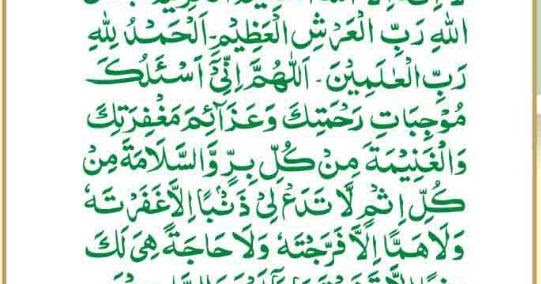 اللهِ رَبِّ الْعَرْشِ الْعَظِيْمِ۔ اَلْحَمْدُ لِلّٰهِ
رَبِّ الْعٰلَمِيْنَ۔ اَللّٰهُمَّ اِنِّيْ اَسْئَلُكَ
مُوْجِبَاتِ رَحْمَتِكَ وَعَزَآئِمَ مَغْفِرَتِكَ
وَالْغَنِيْمَةَ مِنْ كُلِّ بِرٍّ وَّالسَّلَامَةَ مِنْ
كُلِّ اِثْمٍ لَا تَدَعْ لِيْ ذَنْۢبًا اِلَّا غَفَرْتَهٗ
وَلَا هَمًّا اِلَّا فَرَّجْتَهٗ وَلَا حَاجَةً هِيَ لَكَ